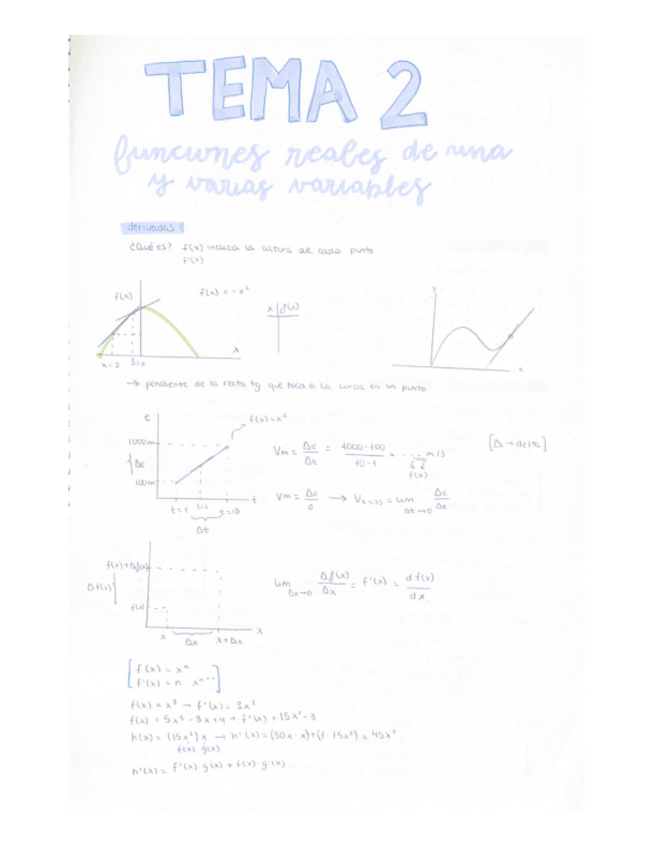 TEMA 2
funciones reales de una
y varias variables
derivadas
¿Qué es? f(x) indica la altura de cada punto
f'(x)
f(x)
f(x) = -x²
x | f(x)
y
x
x
x=2
→ pendiente de la recta tg que toca a la curva en un punto
e
f(x)=x²
1000m
Δe
100m
t=1
t=10
t
Δt
Vm = Δe/Δt = 1000-100/10-1 = ... m/s
f(x)
[Δ → delta]
Vm = Δe/0 → V = lim Δt→0 Δe/Δt
f(x)+Δf(x)
Δf(x)
f(x)
x
Δx
x+Δx
x
lim Δx→0 Δf(x)/Δx = f'(x) = d f(x)/dx
f(x) = xⁿ
f'(x) = n · xⁿ⁻¹
f(x) = x³ → f'(x) = 3x²
f(x) = 5x³ - 3x+4 → f'(x) = 15x² - 3
h(x) = (15x²)x → h'(x) = (30x·x)+(1·15x²) = 45x²
f(x) g(x)
h'(x) = f'(x)·g(x) + f(x)·g'(x)